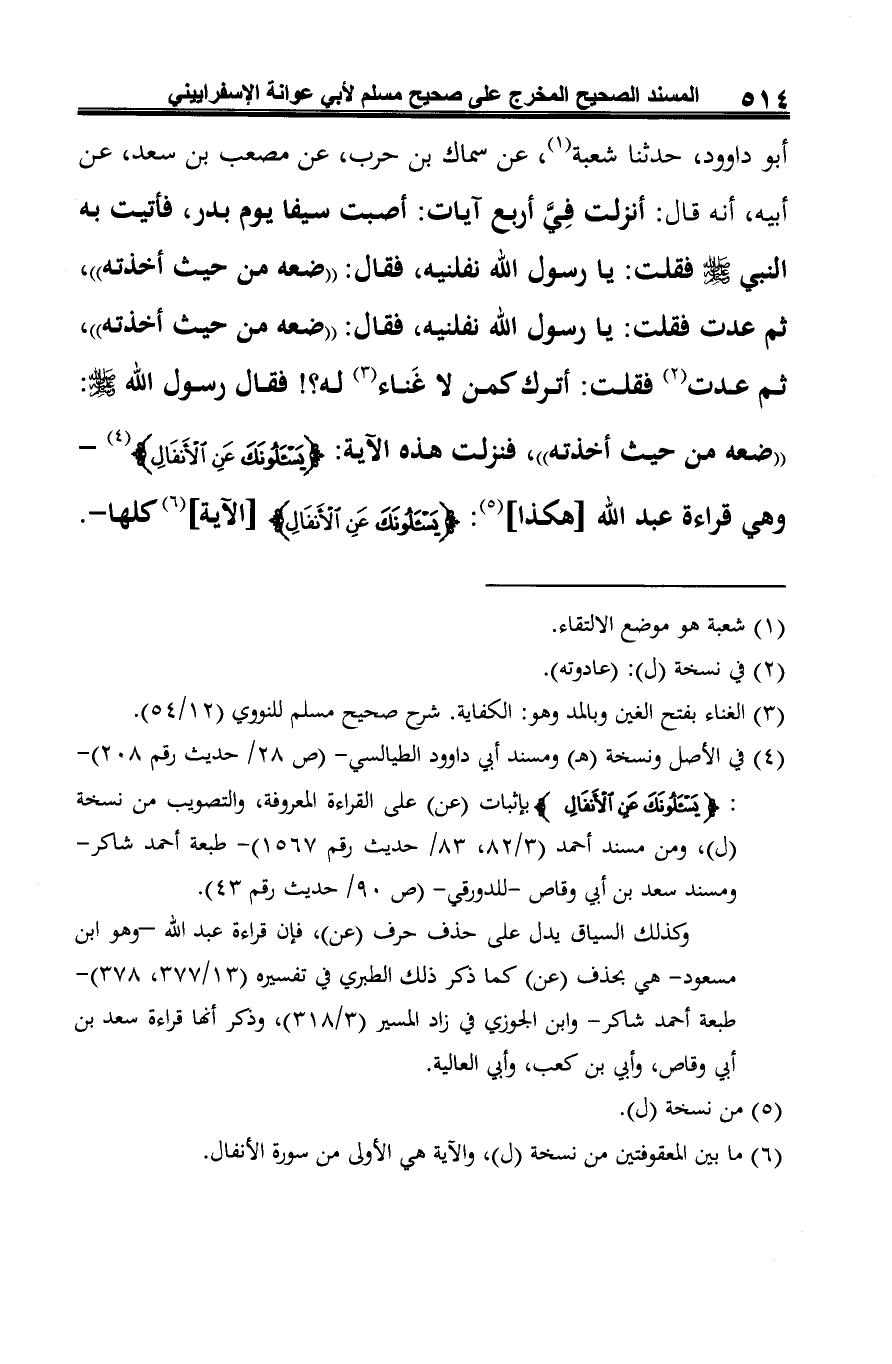 ٥١٤ المسند الصحيح المخرج على صحيح مسلم لأبي عوانة الإسفراييني
أبو داوود، حدثنا شعبة(١)، عن سماك بن حرب، عن مصعب بن سعد، عن
أبيه، أنه قال: أنزلت فِيَّ أربع آيات: أصبت سيفا يوم بدر، فأتيت به
النبي ﷺ فقلت: يا رسول الله نفلنيه، فقال: ((ضعه من حيث أخذته))،
ثم عدت فقلت: يا رسول الله نفلنيه، فقال: ((ضعه من حيث أخذته))،
ثم عدت(٢) فقلت: أترك كمن لا غَناء(٣) له؟! فقال رسول الله ﷺ:
((ضعه من حيث أخذته))، فنزلت هذه الآية: ﴿يَسْـَٔلُونَكَ عَنِ ٱلْأَنفَالِ﴾(٤) –
وهي قراءة عبد الله [هكذا](٥): ﴿يَسْـَٔلُونَكَ عَنِ ٱلْأَنفَالِ﴾ [الآية](٦) كلها–.
(١) شعبة هو موضع الالتقاء.
(٢) في نسخة (ل): (عادوته).
(٣) الغناء بفتح الغين وبالمد وهو: الكفاية. شرح صحيح مسلم للنووي (٥٤/١٢).
(٤) في الأصل ونسخة (هـ) ومسند أبي داوود الطيالسي– (ص ٢٨/ حديث رقم ٢٠٨)–
: ﴿يَسْـَٔلُونَكَ عَنِ ٱلْأَنفَالِ﴾ بإثبات (عن) على القراءة المعروفة، والتصويب من نسخة
(ل)، ومن مسند أحمد (٨٢/٣، ٨٣/ حديث رقم ١٥٦٧)– طبعة أحمد شاكر–
ومسند سعد بن أبي وقاص –للدورقي– (ص ٩٠/ حديث رقم ٤٣).
وكذلك السياق يدل على حذف حرف (عن)، فإن قراءة عبد الله –وهو ابن
مسعود– هي بحذف (عن) كما ذكر ذلك الطبري في تفسيره (٣٧٧/١٣، ٣٧٨)–
طبعة أحمد شاكر– وابن الجوزي في زاد المسير (٣١٨/٣)، وذكر أنها قراءة سعد بن
أبي وقاص، وأبي بن كعب، وأبي العالية.
(٥) من نسخة (ل).
(٦) ما بين المعقوفتين من نسخة (ل)، والآية هي الأولى من سورة الأنفال.